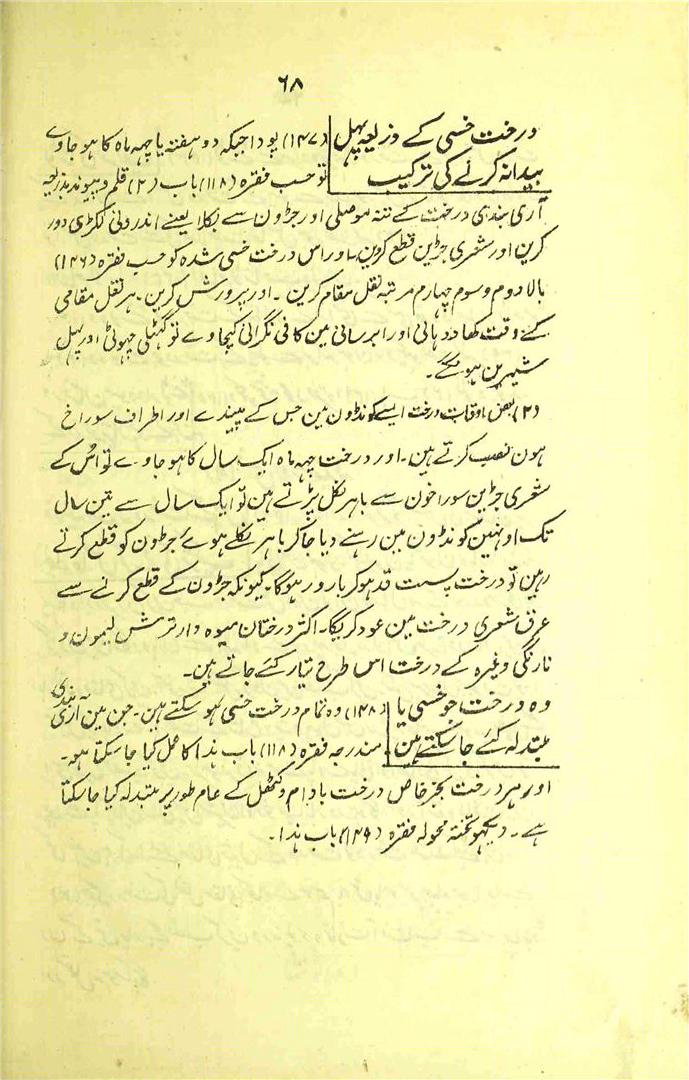 ۶۸
درخت خسی کے ذریعہ پھل (۱۴۷) پودا جبکہ دو ہفتہ یا چہہ ماہ کا ہو جاوے
بیدانہ کرنے کی ترکیب تو حسب فقرہ (۱۱۸) باب (۲) قلم و پیوند بذریعہ
آری بندی درخت کے تنہ موصلی اور جڑون سے نکلا یعنے اندرونی لکڑی دور
کرین اور شعری جڑین قطع کرین۔ اور اس درخت خسی شدہ کو حسب فقرہ (۱۴۶)
بالا دوم و سوم چہارم مرتبہ نقل مقام کرین۔ اور پرورش کرین۔ ہر نقل مقامی
کے وقت کھاد دہانی اور ابرسانی مین کافی نگرانی کیجاوے تو گٹھلی چھوٹی اور پھل
شیرین ہونگے۔
(۲) بعض اوقات درخت ایسے کونڈون مین جس کے پیندے اور اطراف سوراخ
ہون نصب کرتے ہین۔ اور درخت چہہ ماہ ایک سال کا ہو جاوے تو اُس کے
شعری جڑین سوراخون سے باہر نکل پڑتے ہین تو ایک سال سے تین سال
تک اونہین کونڈون مین رہنے دیا جاکر باہر نکلے ہوئے جڑون کو قطع کرتے
رہین تو درخت پست قد ہوکر بارور ہوگا۔ کیونکہ جڑون کے قطع کرنے سے
عرق شعری درخت مین عود کریگا۔ اکثر درختان میوہ دار ترش لیمون و
نارنگی وغیرہ کے درخت اس طرح تیار کئے جاتے ہین۔
وہ درخت جو خسی یا (۱۴۸) وہ تمام درخت خسی ہو سکتے ہین۔ جن مین آری بندی
مبتدلہ کئے جا سکتے ہین۔ مندرجہ فقرہ (۱۱۸) باب ہذا کا عمل کیا جا سکتا ہو۔
اور ہر درخت بجز خاص درخت بادام و کٹھل کے عام طور پر مبتدلہ کیا جا سکتا
ہے۔ دیکھو تختہ محولہ فقرہ (۱۴۹) باب ہذا۔